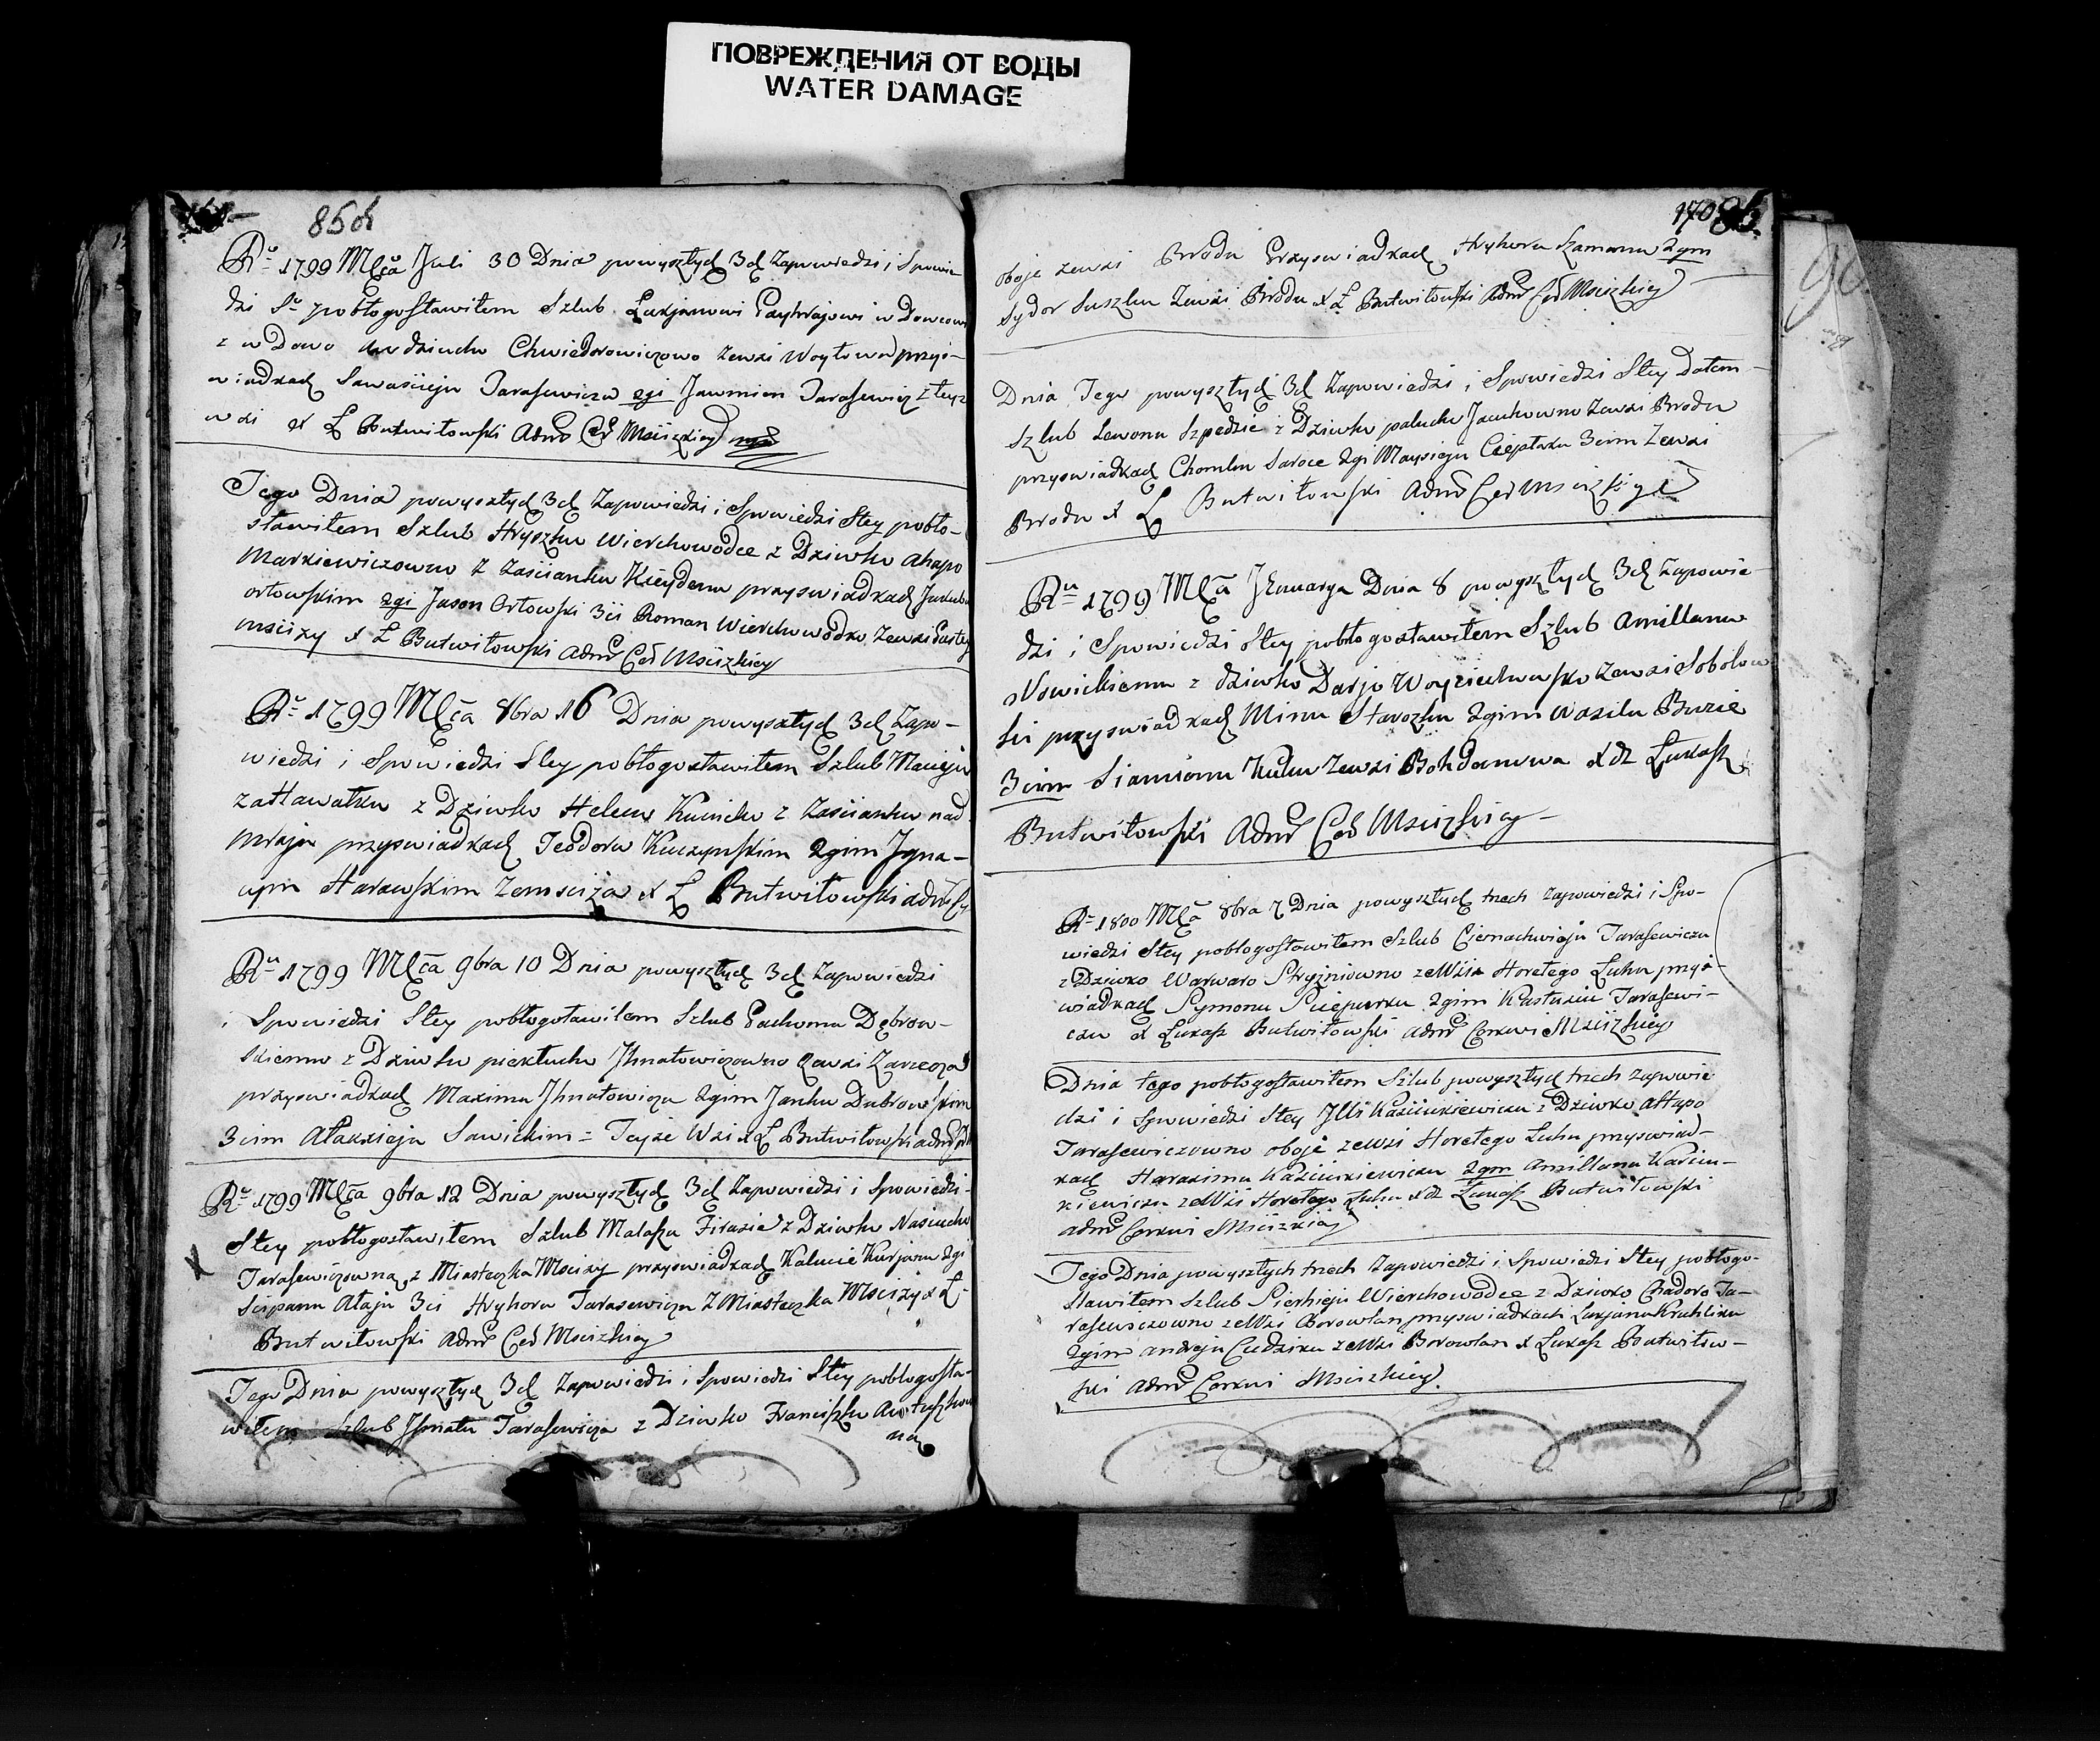 ПОВРЕЖДЕНИЯ ОТ ВОДЫ
WATER DAMAGE
85об
Ru 1799 Mca Juli 30 Dnia powyszłych 3ch Zapowiedzi i Spowie
dzi Sey pobłogosławiłem Szlub Łukjanowi w Dowcowi
z w Dowo Chwiedorowiczowo zewsi Woytowa przys-
wiadkach Sawasijeju Tarasewicza 2gi Jawmien Tarasewicz z teyz
wsi X Ł Butwiłowski Admr Cer Mscizkiey
Tego Dnia powyszłych 3ch Zapowiedzi i Spowiedzi Stey pobło-
sławiłem Szlub Hryszku Wierchowodce z Dziwko Ahapo
Markiewiczowno z Zascianku przyswiadkach Jakubu
orłowskim 2gi Jason Orłowski 3ci Roman Wierchowodko zewsi
Msciży X Ł Butwiłowski Admr Cer Mscizkiey
Ru 1799 Mca 8bra 16 Dnia powyszłych 3ch Zapo-
wiedzi i Spowiedzi Stey pobłogosławiłem Szlub Macieju
z Dziwko Heleno Kunicko z Zascianku nad
mraju przyswiadkach Teodoru Kuczynskim 2gim Jgna-
cym Harawskim Zemsciża X Ł Butwiłowski admr
Ru 1799 Mca 9bra 10 Dnia powyszłych 3ch Zapowiedzi
i Spowiedzi Stey pobłogoławiłem Szlub Pachomu Dębrow-
skiemu z Dziwko piekłucho Jhnatowiczowno zewsi Zarzecza
przyswiadkach Maximu Jhnatowicza 2gim Janku Dubrowskim
3cim Ałaxieju Sawickim = Teyze Wsi X Ł Butwiłowski admr
Ru 1799 Mca 9bra 12 Dnia powyszłych 3ch Zapowiedzi i Spowiedzi
Stey pobłogosławiłem Szlub z Dziwko Nasciucho
Tarasewiczowna z Miasteczka Msciży przyswiadkach Kurjanu 2gi
Scipanu Ałaju 3ci Hryhoru Tarasewicza z Miasteczka Msciży X Ł
Butwiłowski Admr Cer Mscizkiey
Tego Dnia powyszłych 3ch Zapowiedzi i Spowiedzi Stey pobłogosła-
wiłem Szlub Jhnatu Tarasewicza z Dziwko Franciszko
na
170
oboje zewsi Brodu Przyswiadkach Hryhoru Szamanu 2gm
Sydor Suszku Zewsi Brodu X Ł Butwiłowski Admr Cer Mscizkiey
Dnia Tego powyszłych 3ch Zapowiedzi i Spowiedzi Stey Dałem
Szlub Lewonu Szpedzie z Dziwko palucho Jacukowno Zewsi Brodu
przyswiadkach Chomku Saroce 2gi Maysieju Ciepłaku 3cim Zewsi
Brodu X Ł Butwiłowski Admr Cer Mscizkiey
Ru 1799 Mca Jhnuarya Dnia 8 powyszłych 3ch Zapowie
dzi i Spowiedzi Stey pobłogosławiłem Szlub Amillanu
Nowickiemu z dziwko Darjo Woyciechowsko zewsi Sobolow
ki przyswiadkach Minu Starozku 2gim Wasilu Buzie
3cim Siamionu Kuku Zewsi Bohdanowa X dz Łukasz
Butwiłowski Admr Cer Mscizkiey
Ru 1800 Mca 8bra 7 Dnia powyszłych trzech Zapowiedzi i Spo-
wiedzi Stey pobłogosławiłem Szlub Ciemachwieju Tarasewiczu
z Dziwko Warwaro Stryzniowno zeWsi Horełego Łuhu przys-
wiadkach Symonu Puciepurku 2gim Kastusiu Tarasewi-
czu X Łukasz Butwiłowski Admr Cerkwi Mscizkiey
Dnia tego pobłogosławiłem Szlub powyszłych trzech zapowie
dzi i Spowiedzi Stey Jlli Kaziukiewiczu z Dziwko Ahapo
Tarasewiczowno oboje zeWsi Horełego Łuhu przyswiad-
kach Harasimu Kaziukiewiczu 2gm Amillanu Kaziu-
kiewiczu zeWsi Horełego Łuhu X dz Łukasz Butwiłowski
Admr Cerkwi Mscizkiey
Tego Dnia powyszłych trzech Zapowiedzi i Spowiedzi Stey pobłogo-
sławiłem Szlub Pierhieju Wierchowodce z Dziwko Chadoro Ta-
rasewiczowno zeWsi Borowlan przyswiadkach Łukjanu Kruhliku
2gim andreju Cudziku zeWsi Borowlan X Łukasz Butwiłow-
ski Admr Cerkwi Mscizkiey